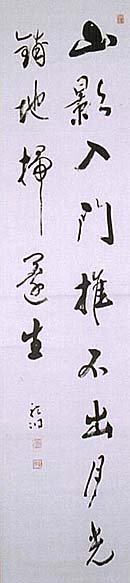 山影入門推不出月光
鋪地掃還生